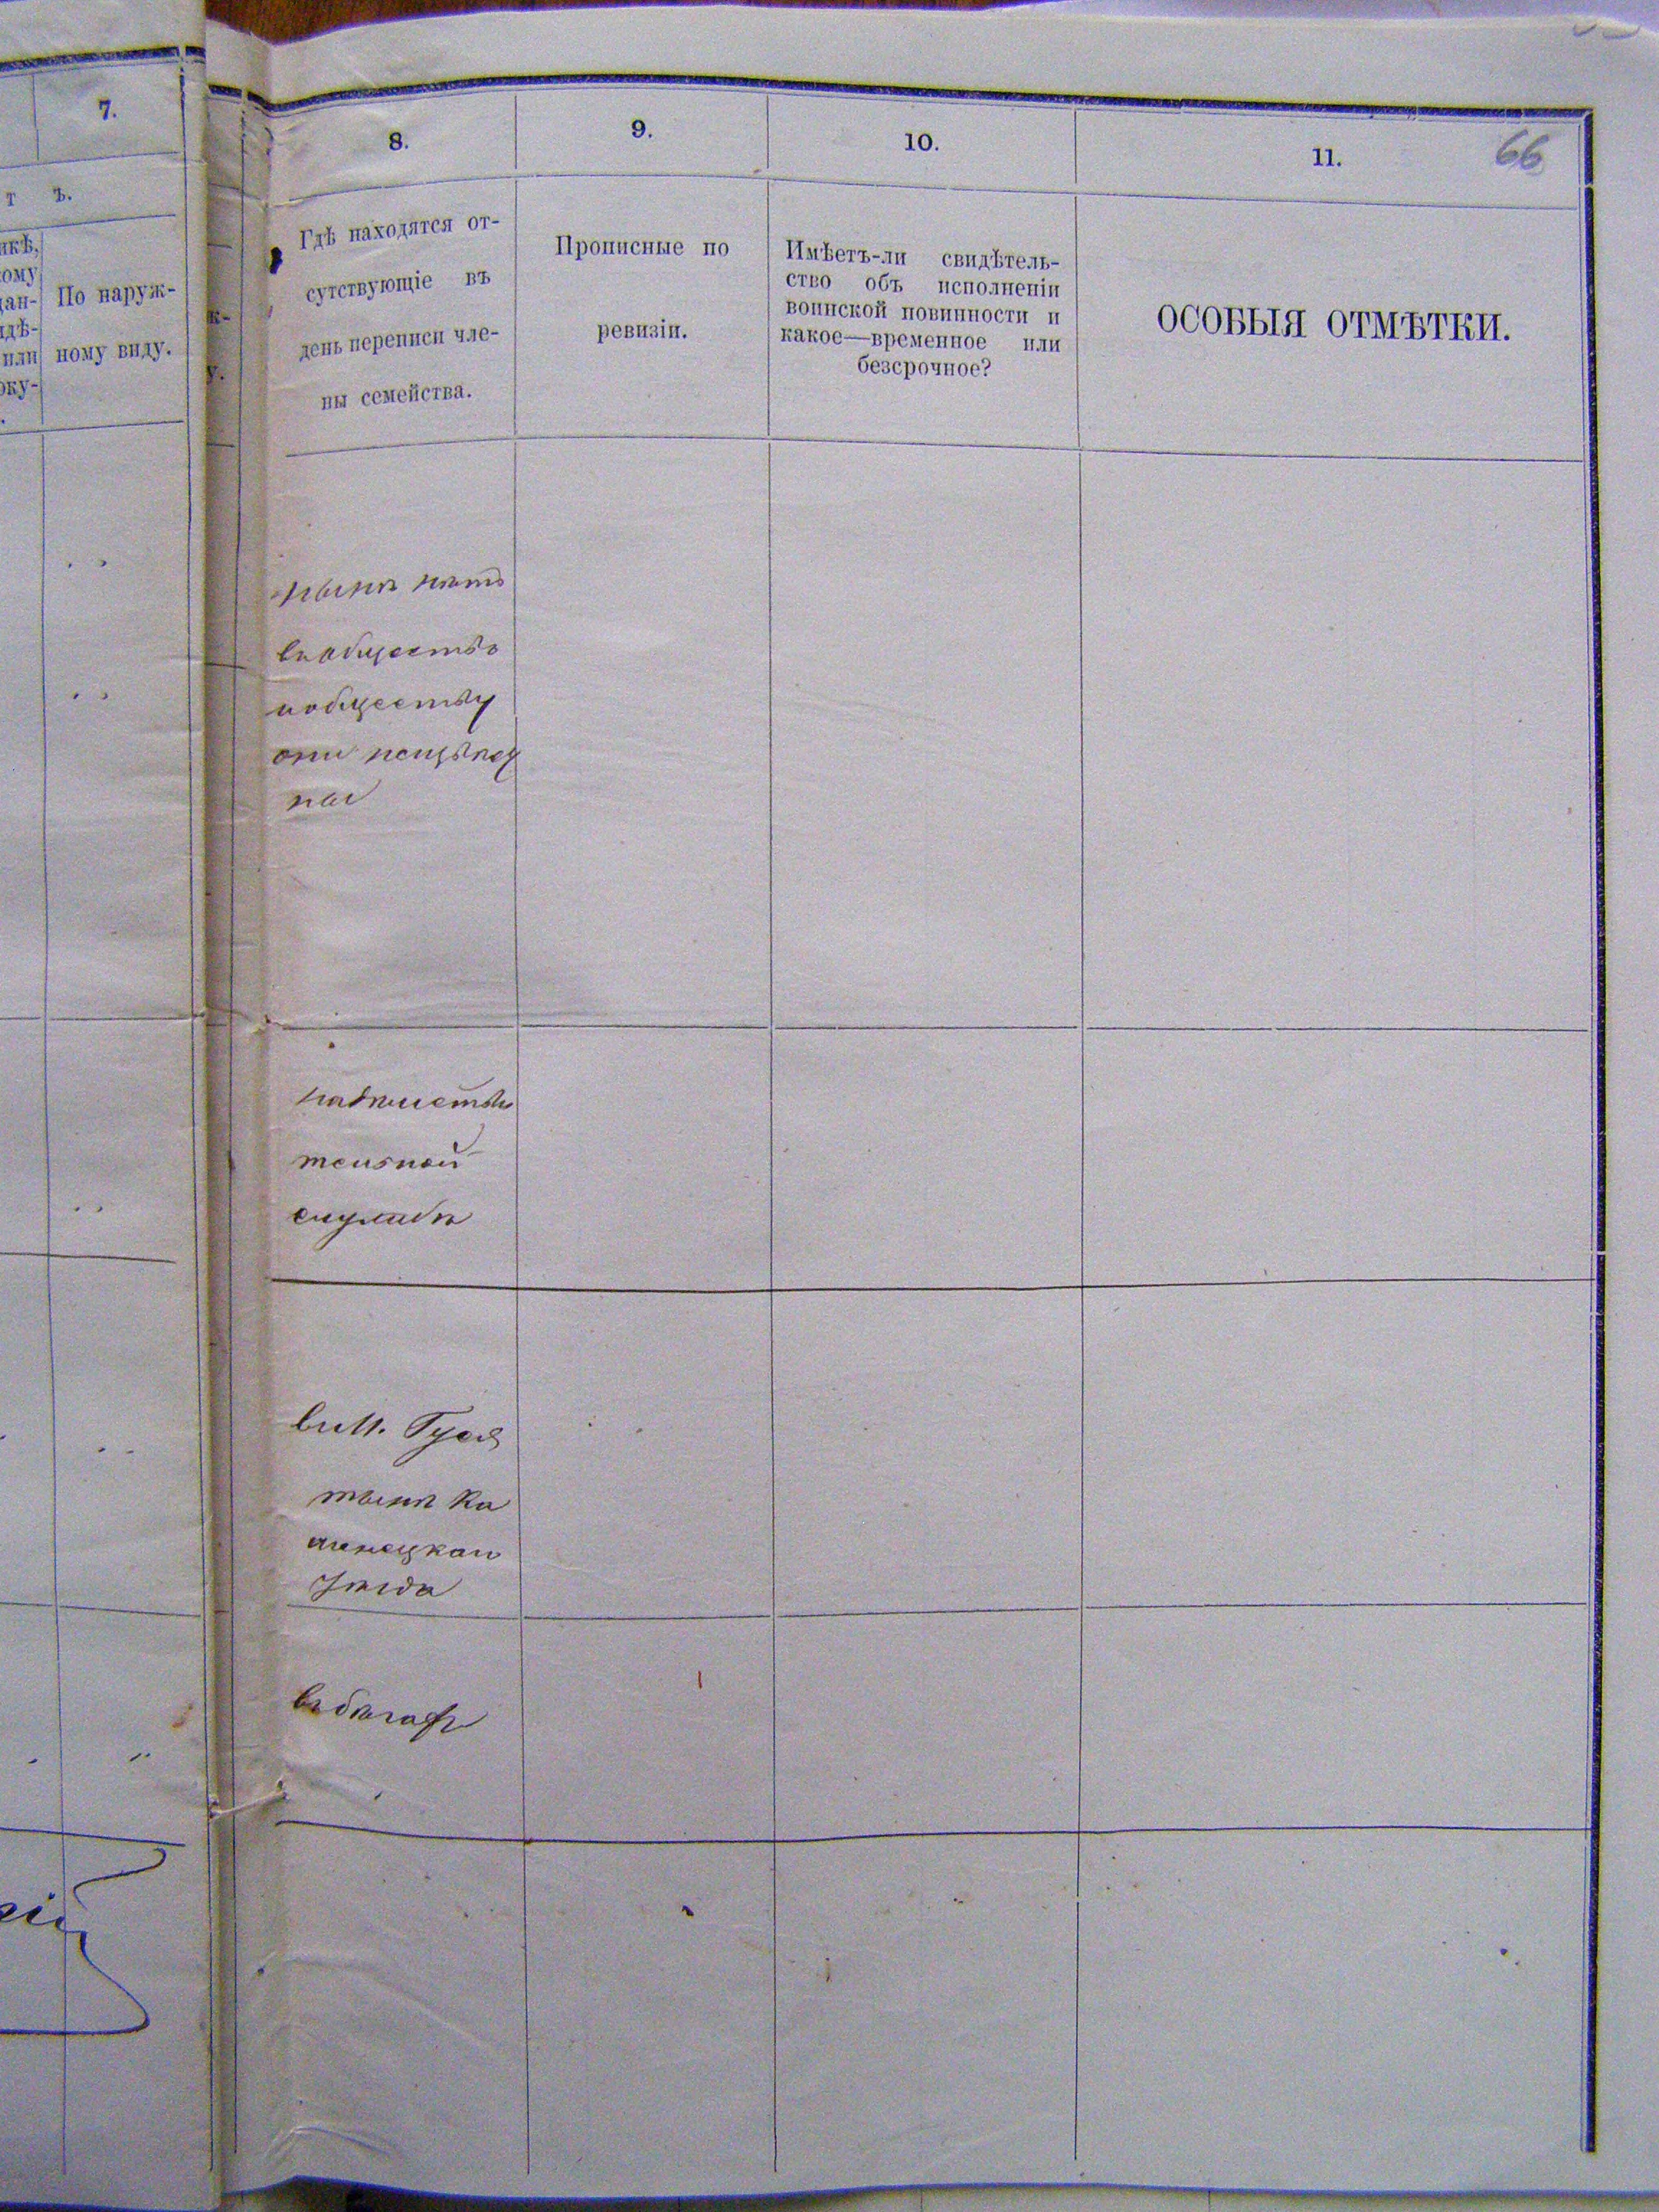 7.
т ъ.
икѣ,
кому
дан-
идѣ-
или
оку-
По наруж-
ному виду.
к-
у.
8.
9.
10.
11.
66
Гдѣ находятся от-
сутствующіе въ
день переписи чле-
ны семейства.
Прописные по
ревизіи.
Имѣетъ-ли свидѣтель-
ство объ исполненіи
воинской повинности и
какое—временное или
безсрочное?
ОСОБЫЯ ОТМѢТКИ.
нынѣ нѣтъ
въ обществѣ
и обществу
они неизвѣст
ны
на дѣйстви
тельной
службѣ
въ М. Гуся
тынѣ Ка
менецкаго
уѣзда